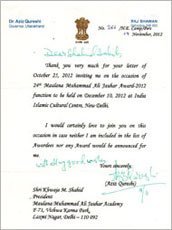 Dr Aziz Qureshi
Governor, Uttarakhand
RAJ BHAWAN
November, 2012
Dear Shahid Sahib,
Thank you, very much for your letter of
October 21, 2012 inviting me on the occasion of
24th Maulana Muhammad Ali Jauhar Award-2012
function to be held on December 10, 2012 at India
Islamic Cultural Centre, New Delhi.
I would certainly love to join you on this
occasion in case neither I am included in the list of
Awardees nor any Award would be announced for
me.
Yours sincerely,
(Aziz Qureshi)
Shri Khwaja M. Shahid
President
Maulana Muhammad Ali Jauhar Academy
P-73, Vishwa Karma Park,
Laxmi Nagar, Delhi – 110 092